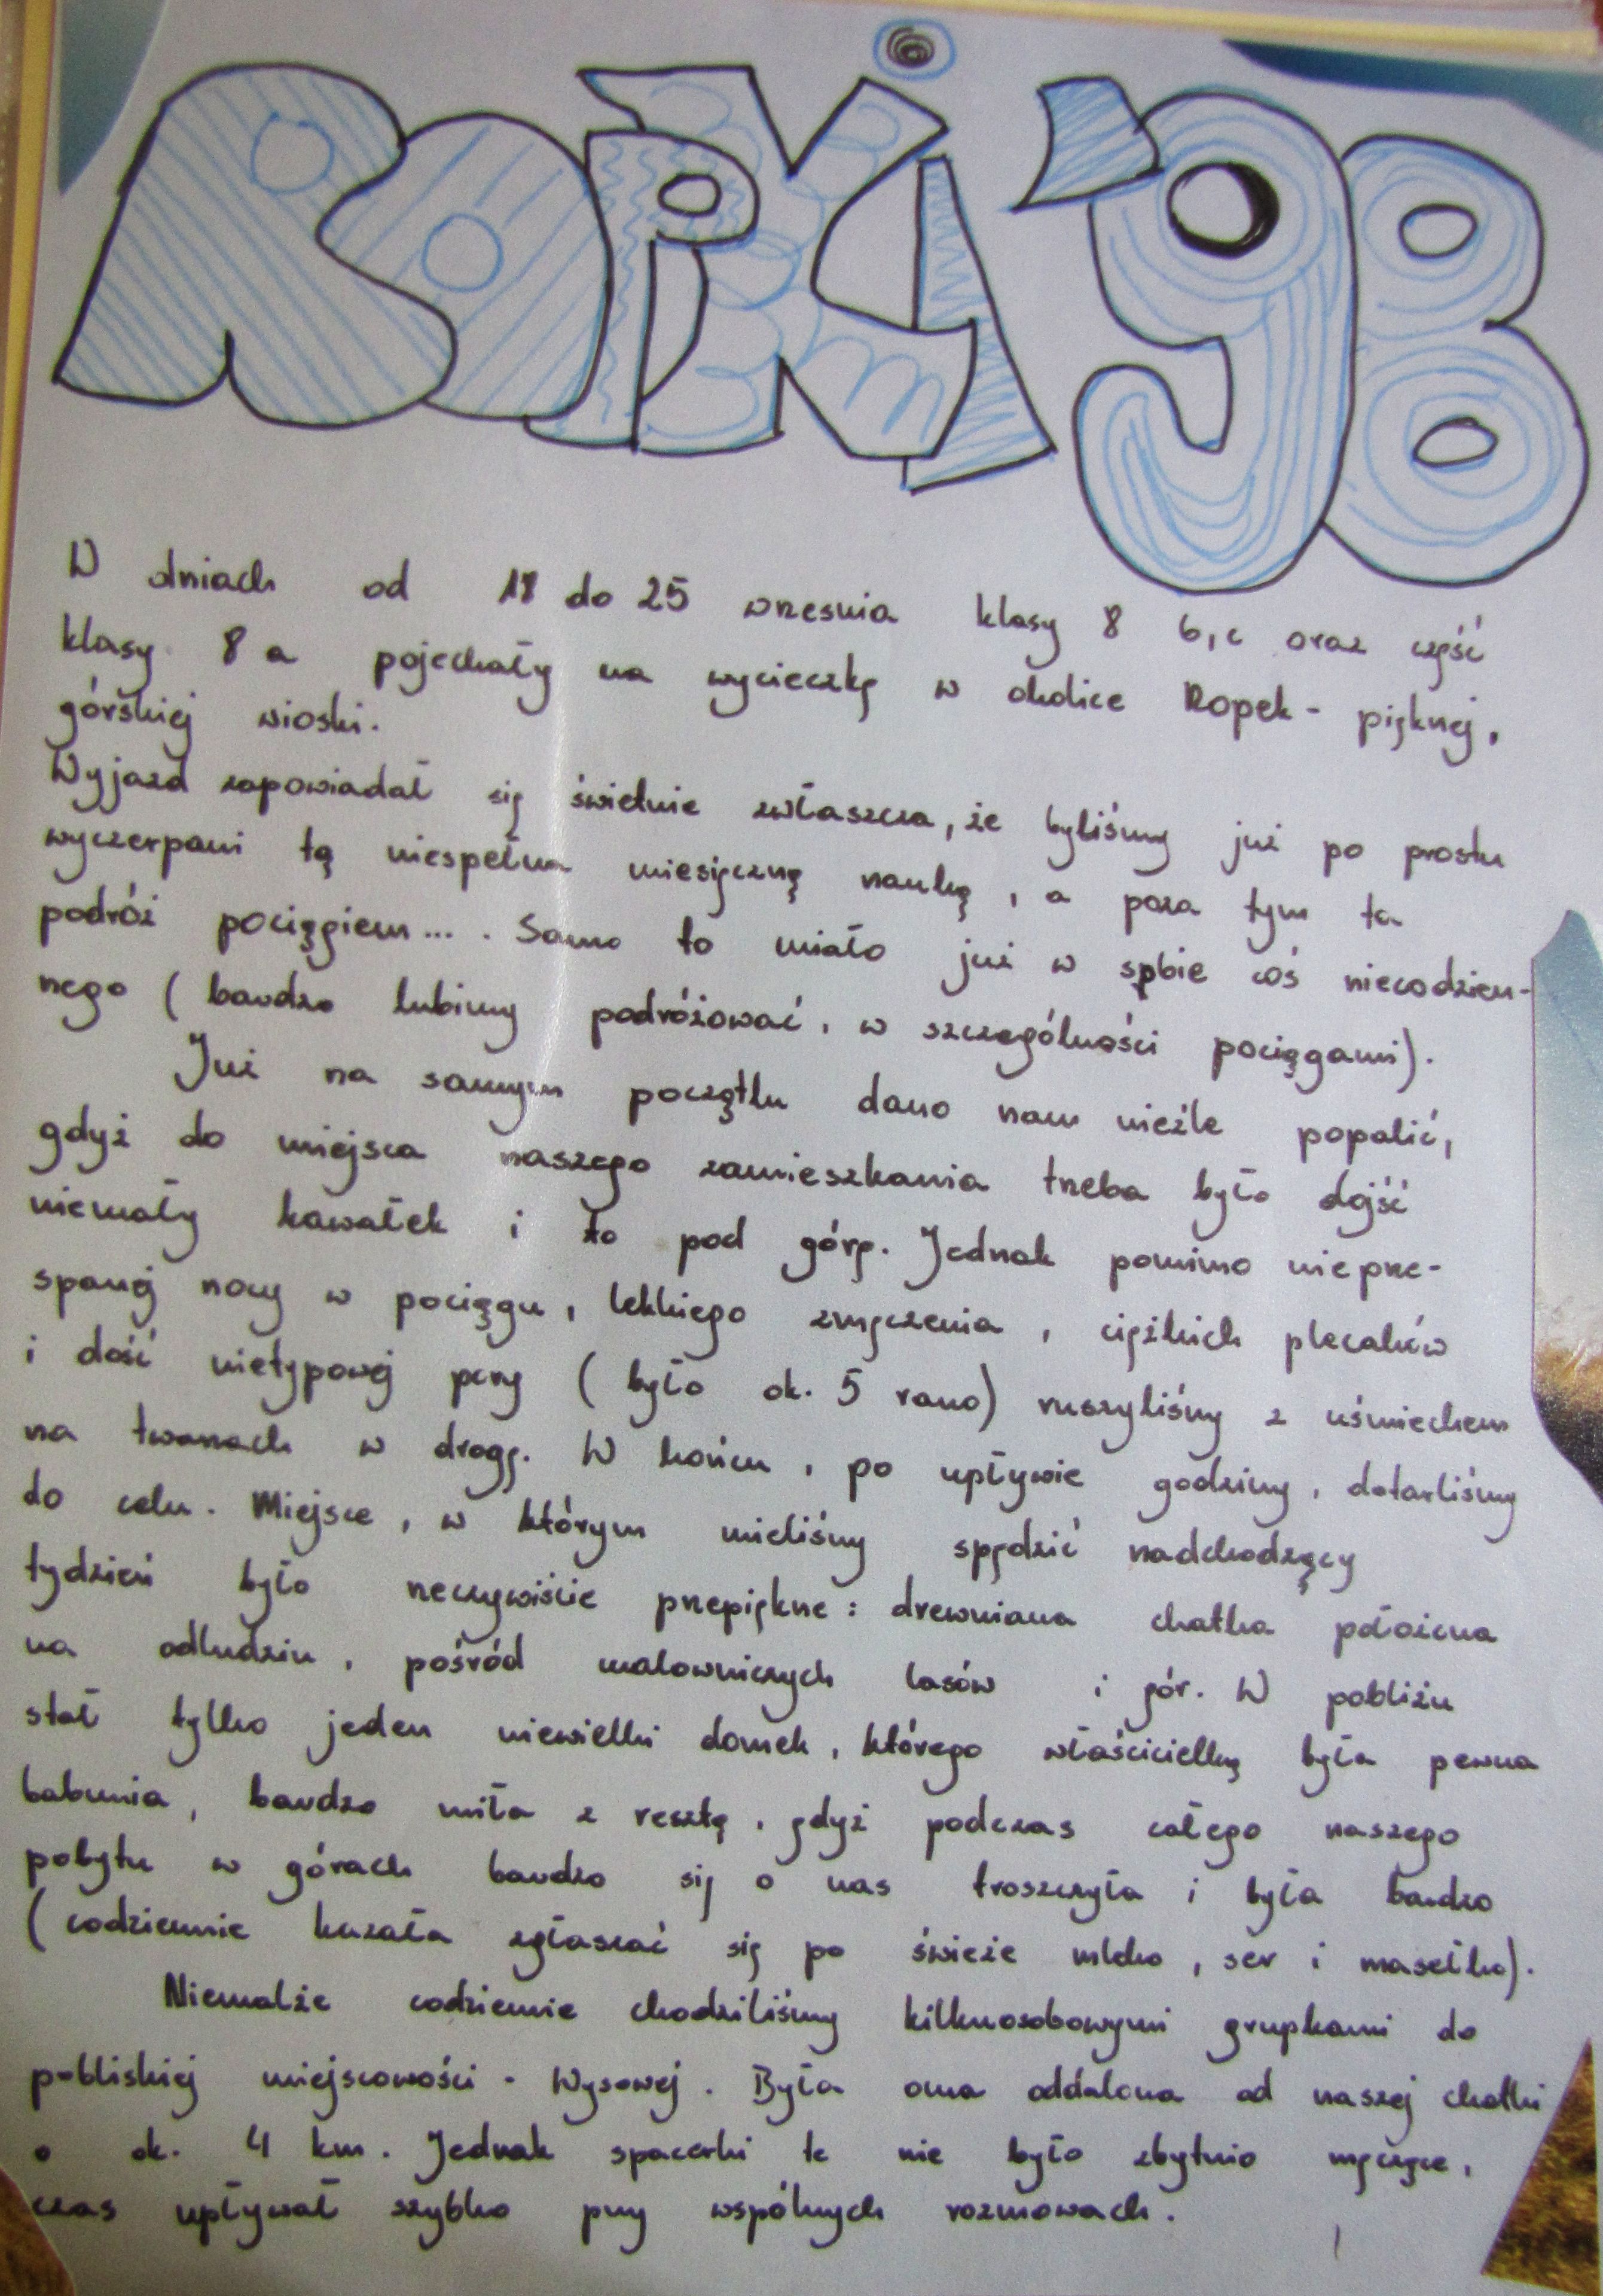 Ropki '98
W dniach od 18 do 25 wrzesnia klasy 8 b,c oraz część
klasy 8 a pojechały na wycieczkę w okolice Ropek - pięknej,
górskiej wioski.
Wyjazd zapowiadał się świetnie zwłaszcza, że byliśmy już po prostu
wyczerpani tą niespełna miesięczną nauką, a poza tym ta
podróż pociągiem... . Samo to miało już w sobie coś niecodzien-
nego ( bardzo lubimy podróżować, w szczególności pociągami).
Już na samym początku dano nam nieźle popalić,
gdyż do miejsca naszego zamieszkania trzeba było dojść
niemały kawałek i to pod górę. Jednak pomimo nieprze-
spanej nocy w pociągu, lekkiego zmęczenia, ciężkich plecaków
i dość nietypowej pory ( było ok. 5 rano) ruszyliśmy z uśmiechem
na twarzach w drogę. W końcu, po upływie godziny, dotarliśmy
do celu. Miejsce, w którym mieliśmy spędzić nadchodzący
tydzień było rzeczywiście przepiękne: drewniana chatka położona
na odludziu, pośród malowniczych lasów i gór. W pobliżu
stał tylko jeden niewielki domek, którego właścicielką była pewna
babunia, bardzo miła z resztą, gdyż podczas całego naszego
pobytu w górach bardzo się o nas troszczyła i była bardzo
( codziennie kazała zgłaszać się po świeże mleko, ser i masełko).
Niemalże codziennie chodziliśmy kilkuosobowymi grupkami do
pobliskiej miejscowości - Wysowej. Była ona oddalona od naszej chatki
o ok. 4 km. Jednak spacerki te nie było zbytnio męczące,
czas upływał szybko przy wspólnych rozmowach.